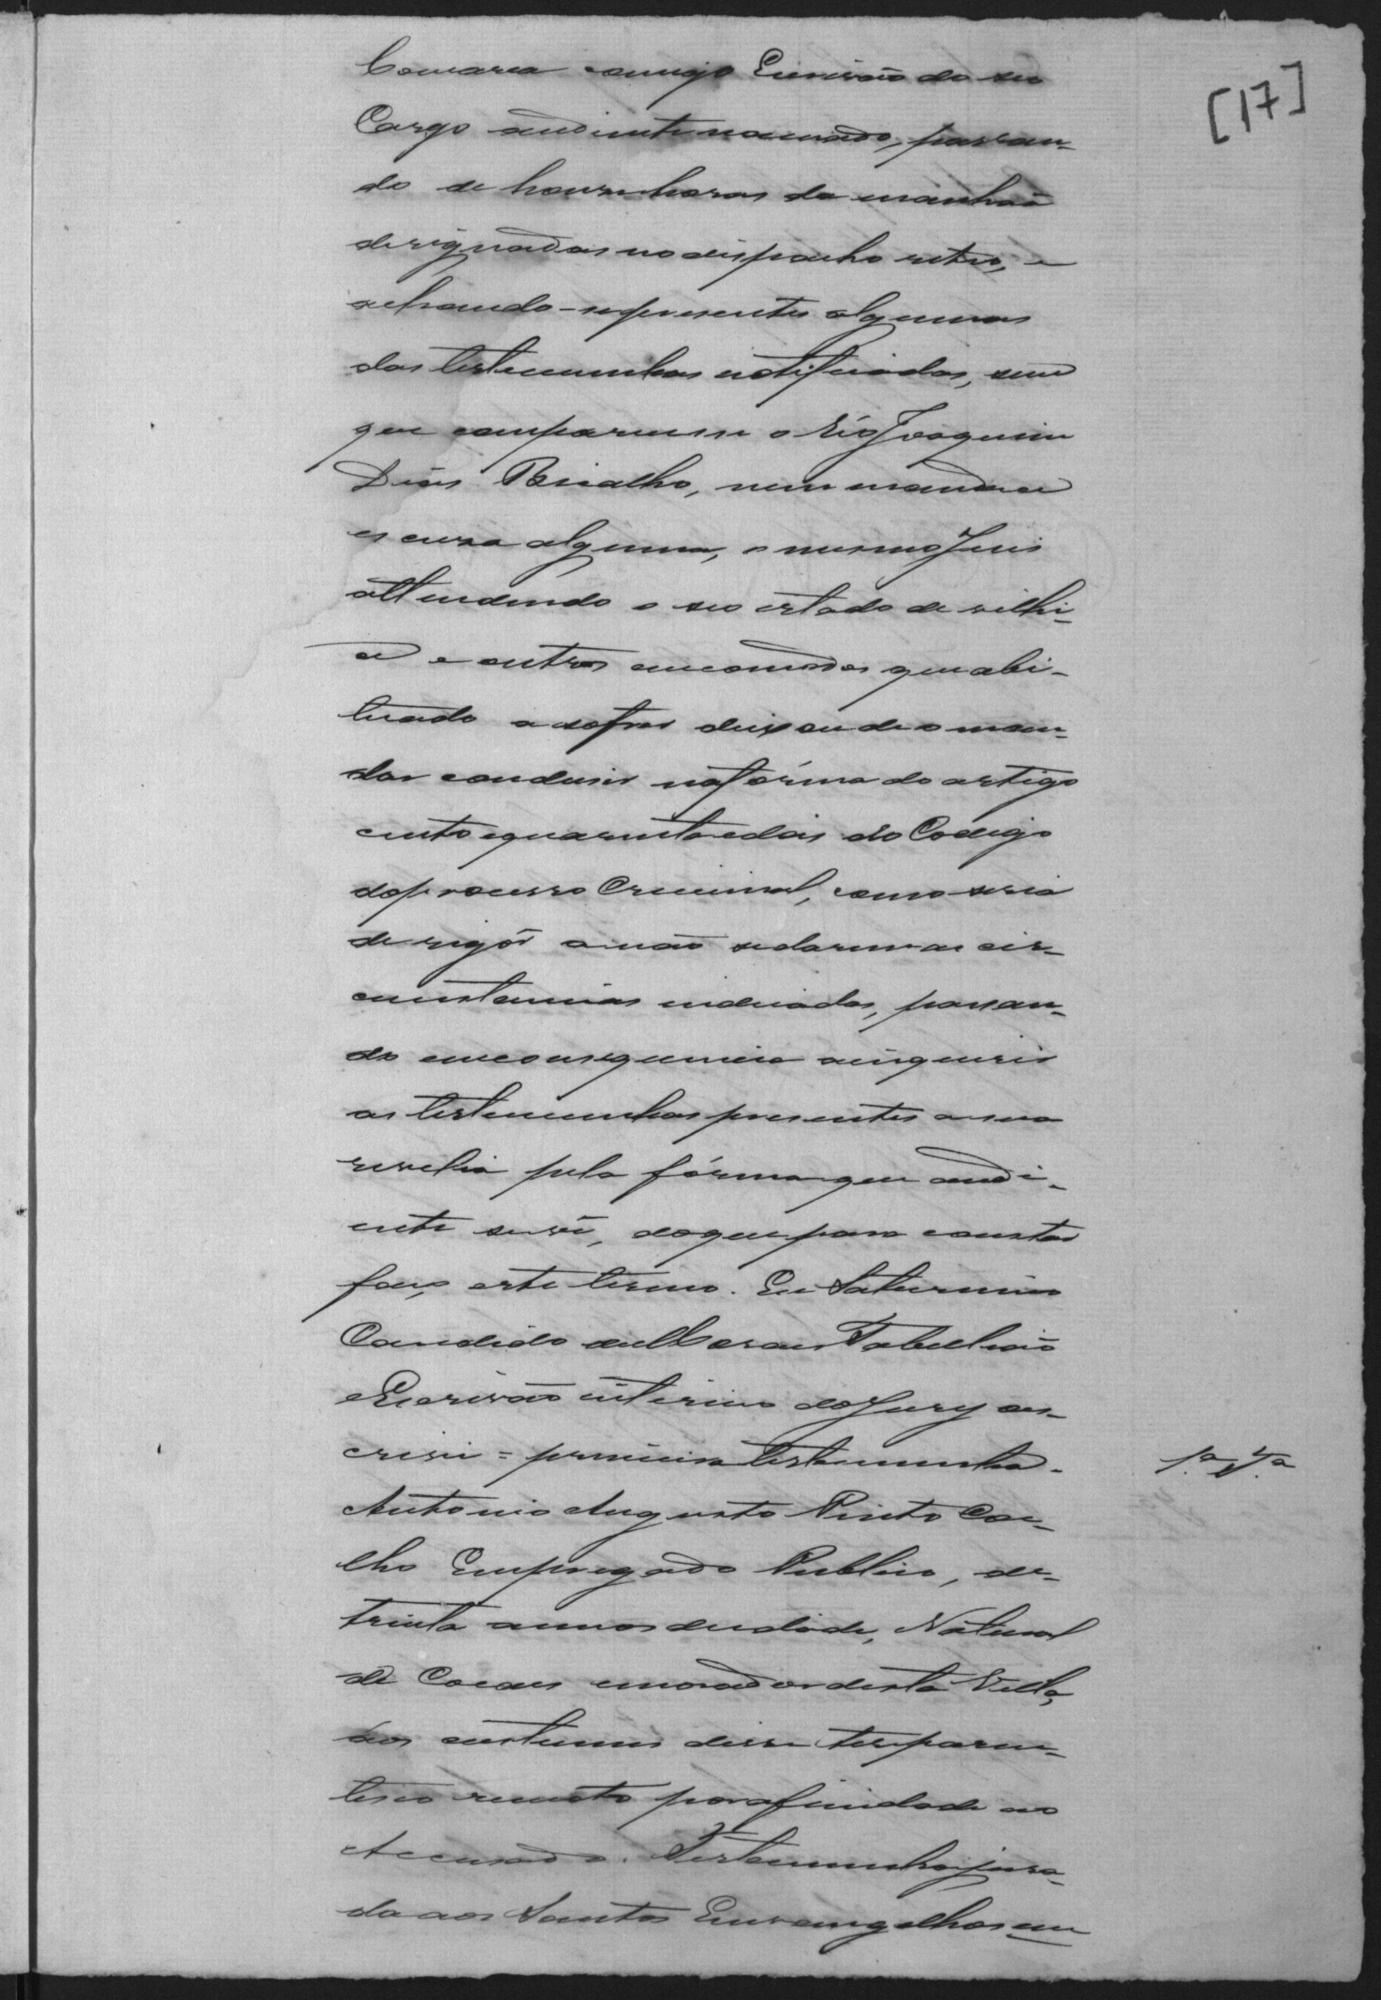 [17]
Comarca comigo Escrivão do seu
Cargo audiente nomeado, passan-
do de houze horas da manhãa
designadas no despacho retro, e
achando-se presentes algumas
das testemunhas notificadas, sem
que comparecesse o Réo Joaquim
Dias Bicalho, nem mandace
escusa alguma, o mesmo Juis
attendendo o seo estado de vilhi-
ce e outros encomodos que abi-
tuado a sofrer deixou de o man-
dar condusir na fórma do artigo
cento e quarenta e dois do Codigo
do processo Criminal, como seria
de rigôr a não se darem as cir-
cunstancias indicadas, passan-
do em consequencia a inquirir
as testemunhas presentes a sua
revelia pela fórma que audi-
ente se vê, do que para constar
faço este termo. Eu Saturnino
Candido de Moraes Tabellião
e Escrivão interino do Jury es-
crevi = primeira testemunha -
1.ª T.ª
Antonio Augusto Pinto Coe-
lho Empregado Publico, de
trinta annos de idade, Natural
de Cocaes morador desta Villa,
aos custumes disse ter paren-
tesco remoto por afinidade ao
Accusado. Testemunha jura-
da aos Santos Envangelhos em